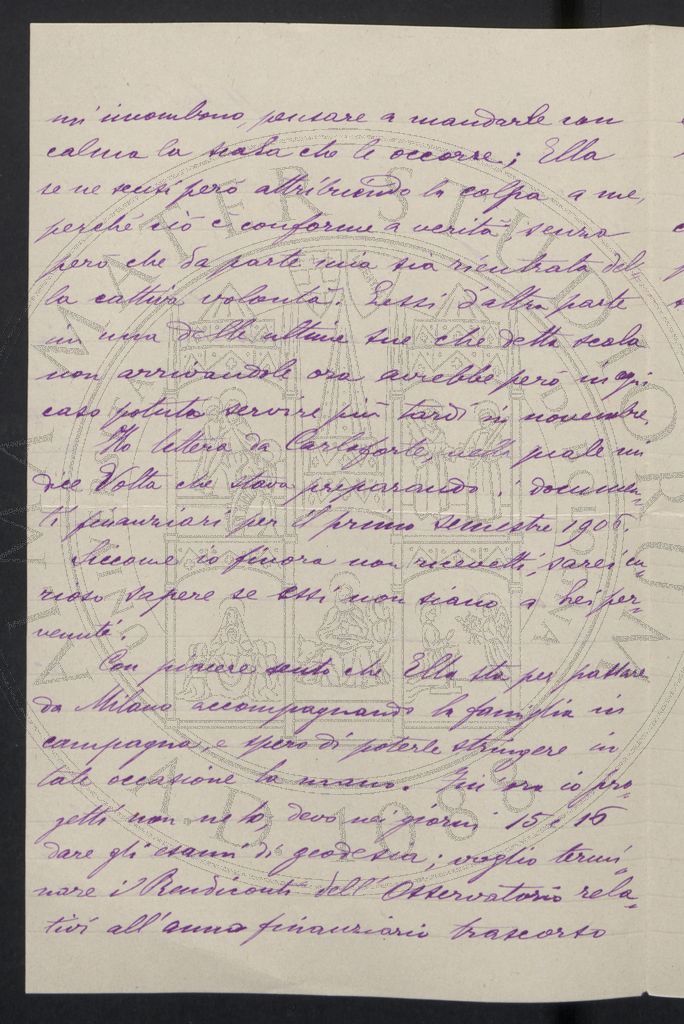 m'incombono, pensare a mandarle con
calma la scala che le occorre; Ella
se ne scusi però attribuendo la colpa a me,
perché ciò è conforme a verità, senza
però che da parte mia sia rientrata del-
la cattiva volontà. Lessi d'altra parte
in una delle ultime sue che detta scala
non arrivandole ora avrebbe però in ogni
caso potuto servire più tardi in novembre.
Ho lettera da Carloforte, nella quale mi
dice Volta che stava preparando i documen-
ti finanziari per il primo semestre 1906.
Siccome io finora non ricevetti, sarei cu-
rioso sapere se essi non siano a Lei per-
venuti.
Con piacere sento che Ella sta per passare
da Milano accompagnando la famiglia in
campagna, e spero di poterle stringere in
tale occasione la mano. Fin ora io pro-
getti non ne ho, devo nei giorni 15 e 16
dare gli esami di geodesia; voglio termi-
nare i Rendiconti dell'Osservatorio rela-
tivi all'anno finanziario trascorso
ALMA MATER STUDIORUM
A.D. 1088